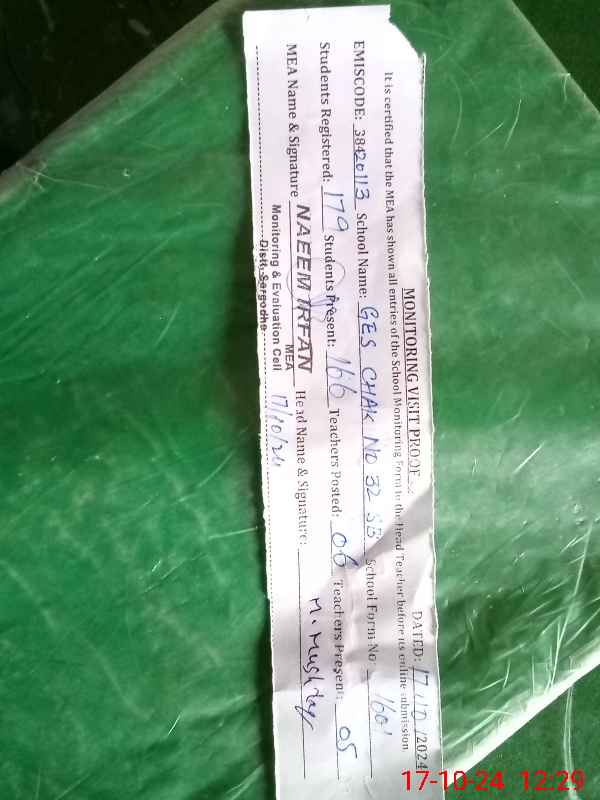 MONITORING VISIT PROOF DATED: 17/10/2024
It is certified that the MEA has shown all entries of the School Monitoring Form to the Head Teacher before its online submission
EMISCODE: 38420113 School Name: GES CHAK NO 32 SB School Form No: 1601
Students Registered: 179 Students Present: 166 Teachers Posted: 06 Teachers Present: 05
MEA Name & Signature NAEEM IRFAN Head Name & Signature: M. Mushtaq
MEA
Monitoring & Evaluation Cell 17/10/24
Distt. Sargodha
17-10-24 12:29